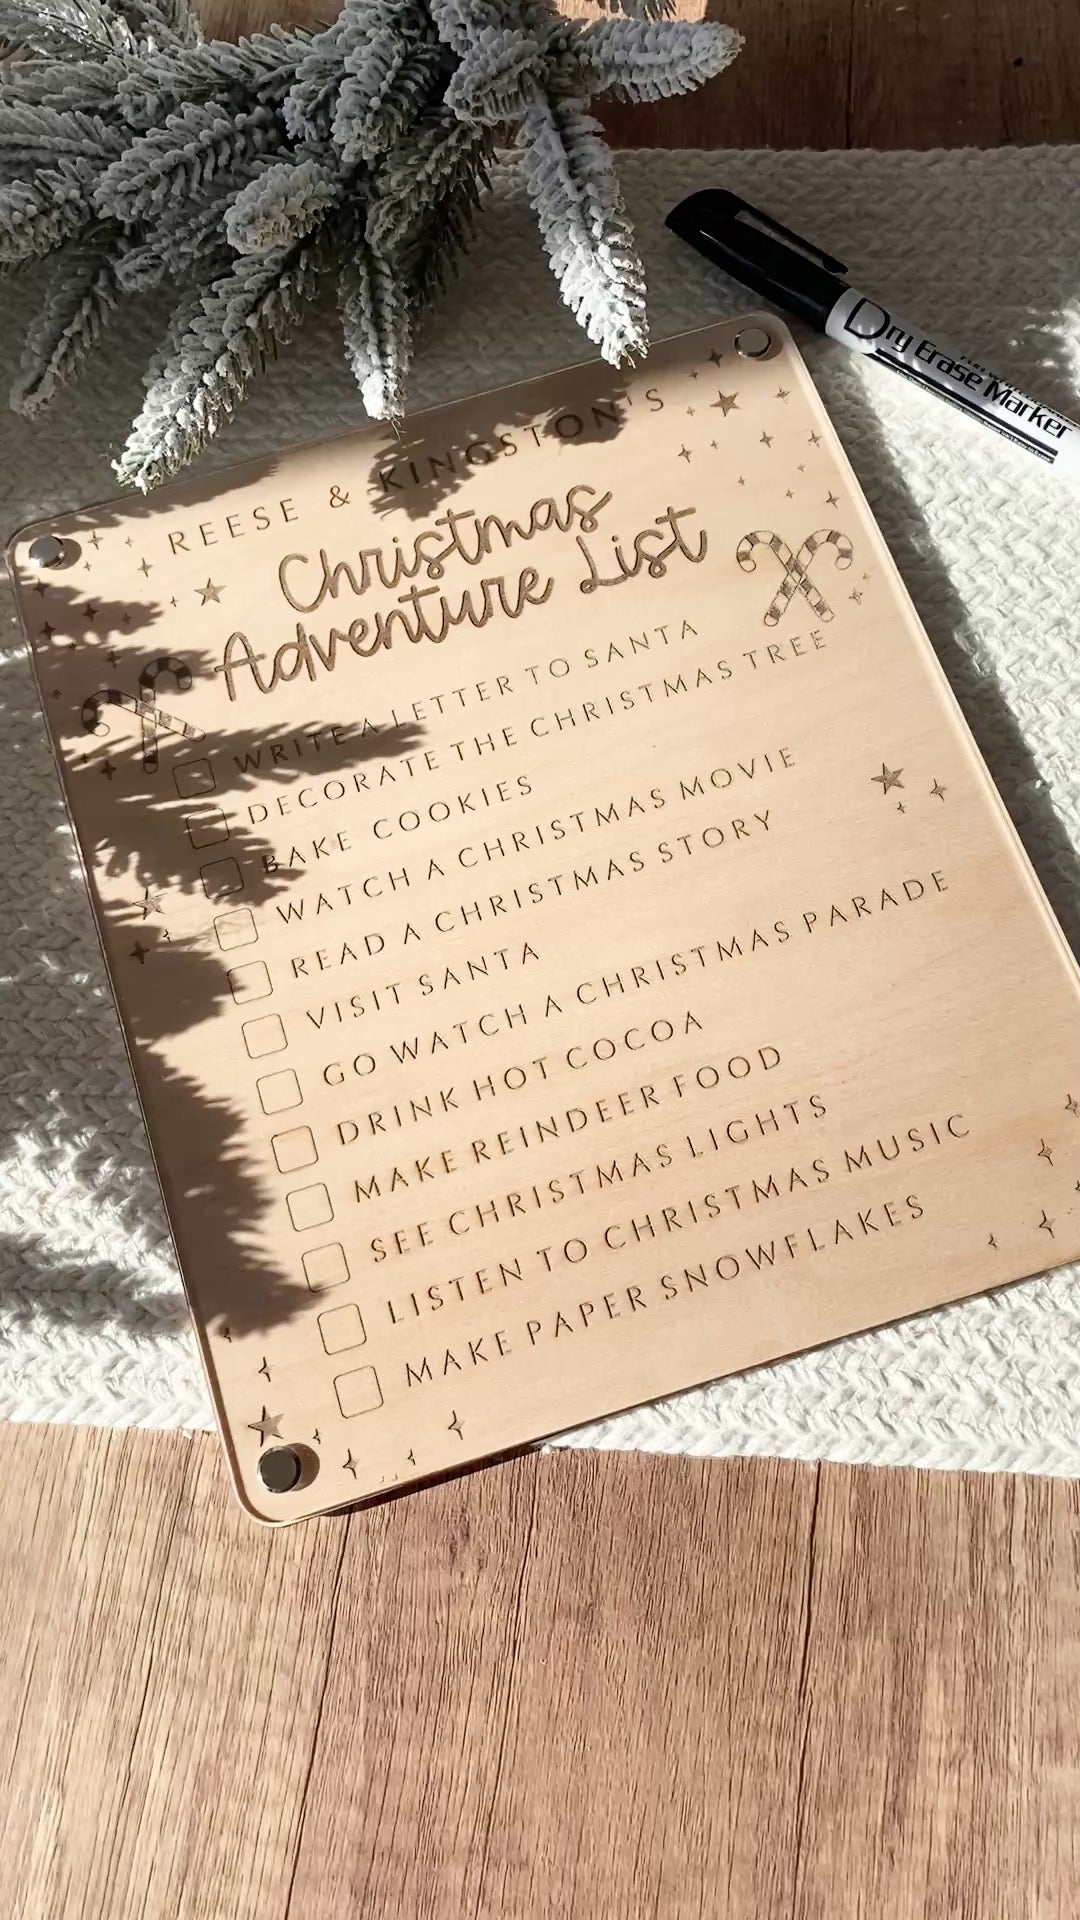 REESE & KINGSTON'S
Christmas
Adventure List
WRITE A LETTER TO SANTA
DECORATE THE CHRISTMAS TREE
BAKE COOKIES
WATCH A CHRISTMAS MOVIE
READ A CHRISTMAS STORY
VISIT SANTA
GO WATCH A CHRISTMAS PARADE
DRINK HOT COCOA
MAKE REINDEER FOOD
SEE CHRISTMAS LIGHTS
LISTEN TO CHRISTMAS MUSIC
MAKE PAPER SNOWFLAKES
Dry Erase Marker